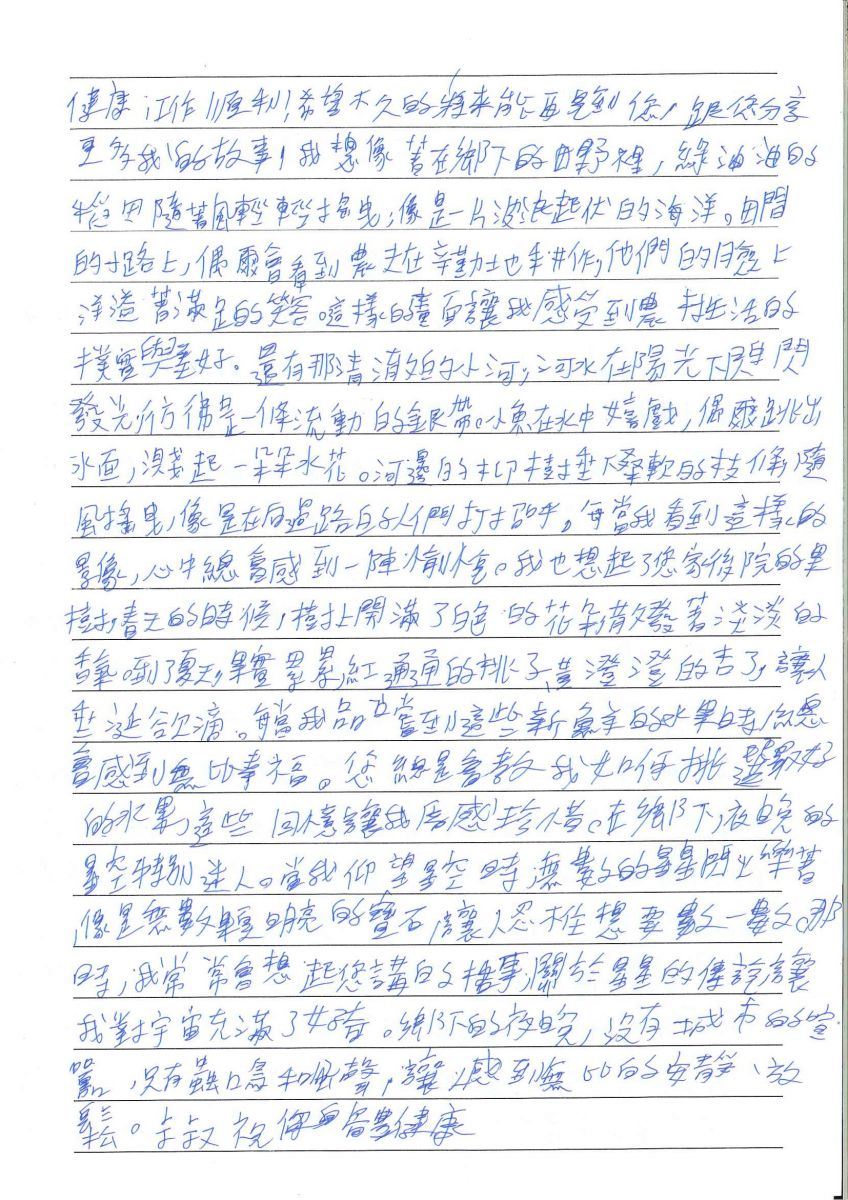 健康,工作順利!希望不久的將來能再見到您,跟您分享
更多我的故事,我想像著在鄉下的田野裡,綠油油的
稻田隨著風輕輕搖曳,像是一片波浪起伏的海洋。田間
的小路上,偶爾會看到農夫在辛勤地耕作,他們的臉上
洋溢著滿足的笑容。這樣的畫面讓我感受到農村生活的
樸實與美好。還有那清澈的小河,河水在陽光下閃閃
發光,彷彿是一條流動的銀帶。小魚在水中嬉戲,偶爾跳出
水面,濺起一朵朵水花。河邊的柳樹垂下柔軟的枝條,隨
風搖曳,像是在向過路的人們打招呼。每當我看到這樣的
景像,心中總會感到一陣愉悅。我也想起了您家後院的果
樹,春天的時候,樹上開滿了白色的花朵,散發著淡淡的
香氣。到了夏天,果實累累,紅通通的桃子、黃澄澄的杏子,讓人
垂涎欲滴。每當我品嚐到這些新鮮的水果時,總
會感到無比幸福。您總是會教我如何挑選最好
的水果,這些回憶讓我倍感珍惜。在鄉下,夜晚的
星空特別迷人。當我仰望星空時,無數的星星閃爍著
,像是無數顆明亮的寶石,讓人忍不住想要數一數。那
時,我常常會想起您講的故事,關於星星的傳說,讓
我對宇宙充滿了好奇。鄉下的夜晚,沒有城市的喧
囂,只有蟲鳴和風聲,讓人感到無比的安靜、放
鬆。叔叔祝您身體健康